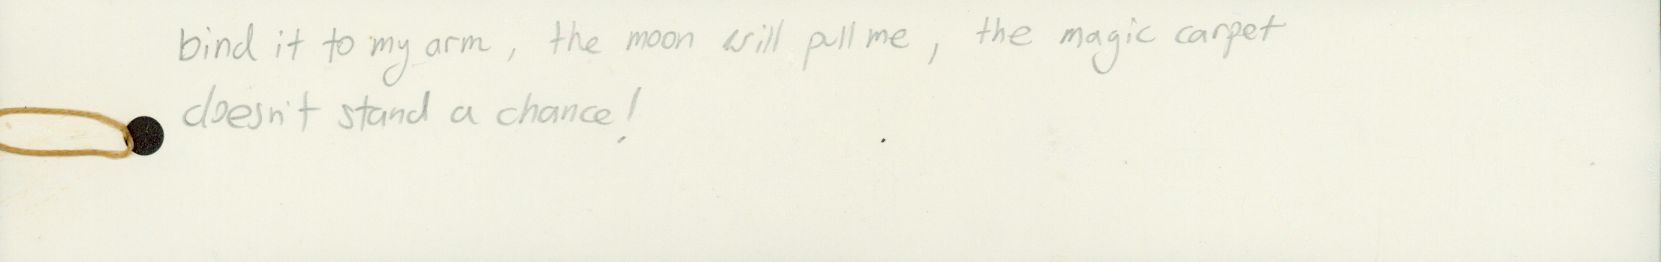 bind it to my arm, the moon will pull me, the magic carpet
doesn't stand a chance!